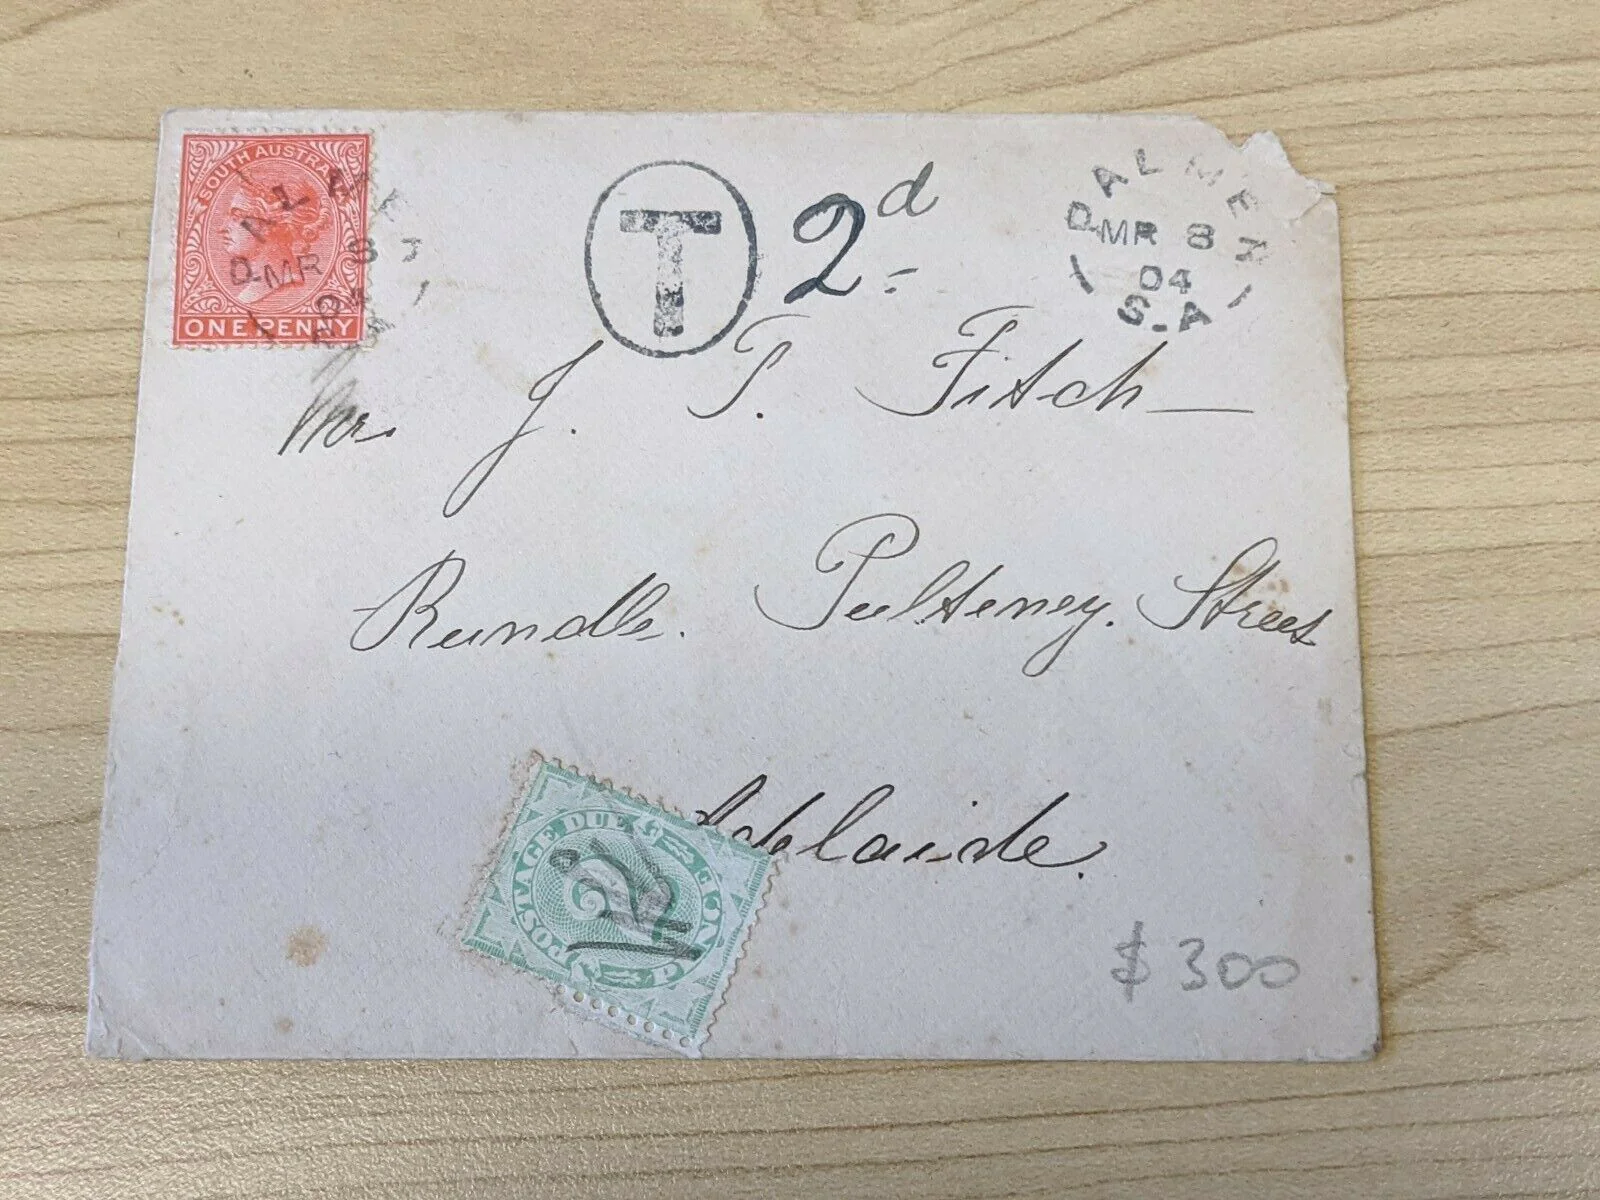 SOUTH AUSTRALIA
ONE PENNY
T 2d
DALMENY
MR 8
04
S.A
Mr. J. T. Fitch
Rundle. Pulteney. Street
Adelaide.
POSTAGE DUE
2
$300